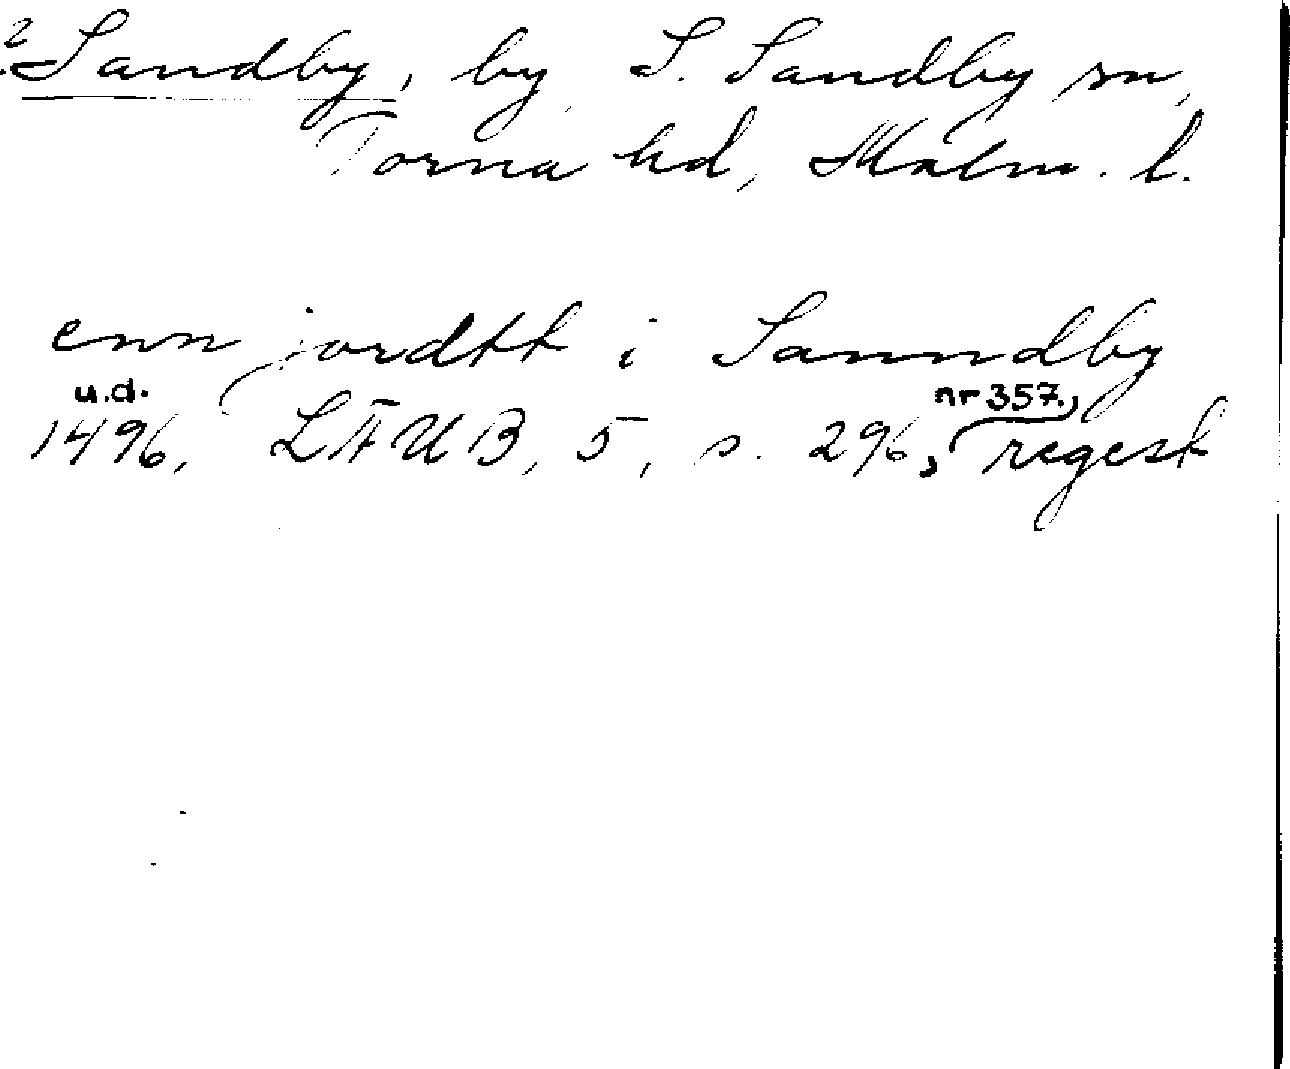 2 Sandby, by, S. Sandby sn,
Torna hd, Malm. l.
enn jordtt i Sanndby
u.d. nr 357.,
1496, LÄUB, 5, s. 296, regest